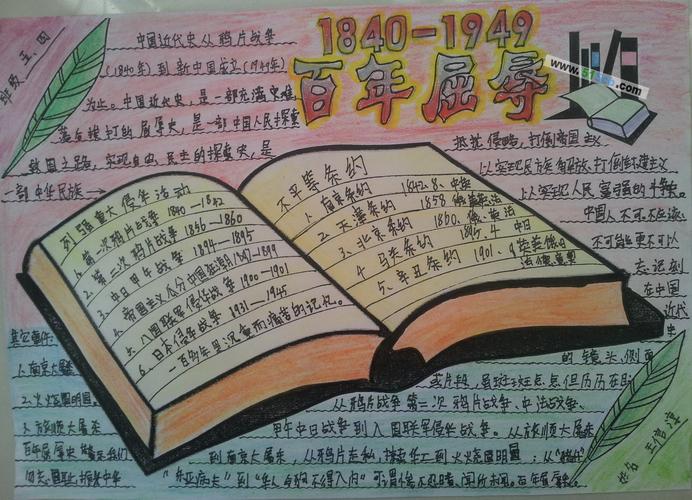 1840-1949
百年屈辱
www.51
.com
班级 五、四
中国近代史从鸦片战争
(1840年)到新中国成立(1949年)
为止。中国近代史,是一部充满灾难,
落后挨打的屈辱史,是一部中国人民探索
救国之路,实现自由、民主的探索史,是
一部中华民族
抵抗侵略,打倒帝国主义
以实现民族解放、打倒
以实现人民富强的
中国人不可不
不可能更不可以
忘记刻
在中国
近代
史
的镜头,侧面
或片段,虽斑斑点点但历历在目
从鸦片战争第二次鸦片战争、中法战争、
甲午中日战争到八国联军侵华战争。从旅顺大屠杀
到南京大屠杀,从鸦片走私,掠卖华工到火烧圆明园;从
“东亚病夫”到“华人与狗不得入内”可谓惨不忍睹、闻所未闻。百年屈辱
列强重大侵华活动
1. 第一次鸦片战争 1840—1842
2. 第二次鸦片战争 1856—1860
3. 中日甲午战争 1894—1895
4. 帝国主义瓜分中国狂潮 1897-1899
5. 八国联军侵华战争 1900—1901
6. 日本侵华战争 1931—1945
一百多年里沉重而痛苦的记忆。
不平等条约
1. 南京条约 1842.8、中英
2. 天津条约 1858 俄美英法
3. 北京条约 1860、俄英法
4. 马关条约 1895.4 中日
5. 辛丑条约 1901.9 英美俄日
法德意奥
其它事件:
1. 南京大屠杀
2. 火烧圆明园
3. 旅顺大屠杀
百年屈辱史警示我们
勿忘国耻,振兴中华
姓名 王